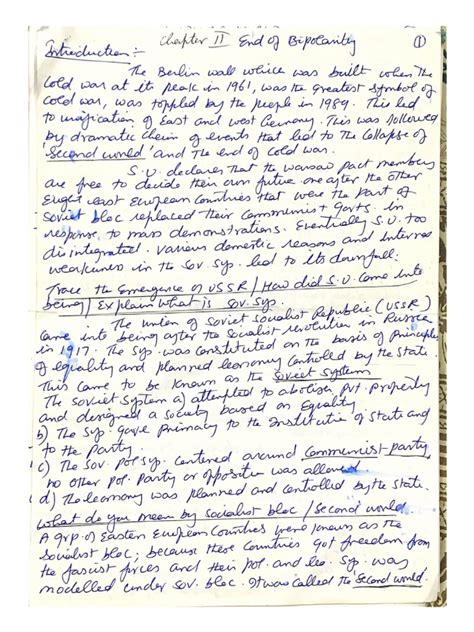 Chapter II End of Bipolarity ①
Introduction :-
The Berlin wall which was built when the
Cold war at it peak in 1961, was the greatest symbol of
Cold war, was toppled by the people in 1989. This led
to unification of East and west Germany. This was followed
by dramatic chain of events that led to the Collapse of
'Second world' and the end of Cold war.
S.U. declares that the warsaw pact members
are free to decide their own future one after the other
Eight east European Countries that were the part of
Soviet bloc replaced their Communist Govts. in
response to mass demonstrations. Eventually S.U. too
disintegrated. Various domestic reasons and Internal
weaknesses in the Sov. Sys. led to its downfall.
Trace the Emergence of USSR / How did S.U. Came into
being / Explain what is Sov. Sys.
The Union of Soviet Socialist Republic (USSR)
Came into being after the Socialist revolution in Russia
in 1917. The Sys. was Constituted on the basis of Principles
of Equality and planned Economy Controlled by the State
This Came to be known as the Soviet System
The Soviet System a) attempted to abolish Pvt. Property
and designed a Society based on Equality
b) The Sys. gave Primacy to the Institution of State and
to the Party.
c) The Sov. Pol. Sys. Centered around Communist party,
no other pol. Party or opposition was allowed.
d) The Economy was planned and Controlled by the State.
What do you mean by Socialist bloc / Second world
A grp. of Eastern European Countries were known as the
Socialist bloc; because these Countries got freedom from
the fascist forces and their Pol. and Eco. Sys. was
modelled under Sov. bloc. It was called the 'Second world'.